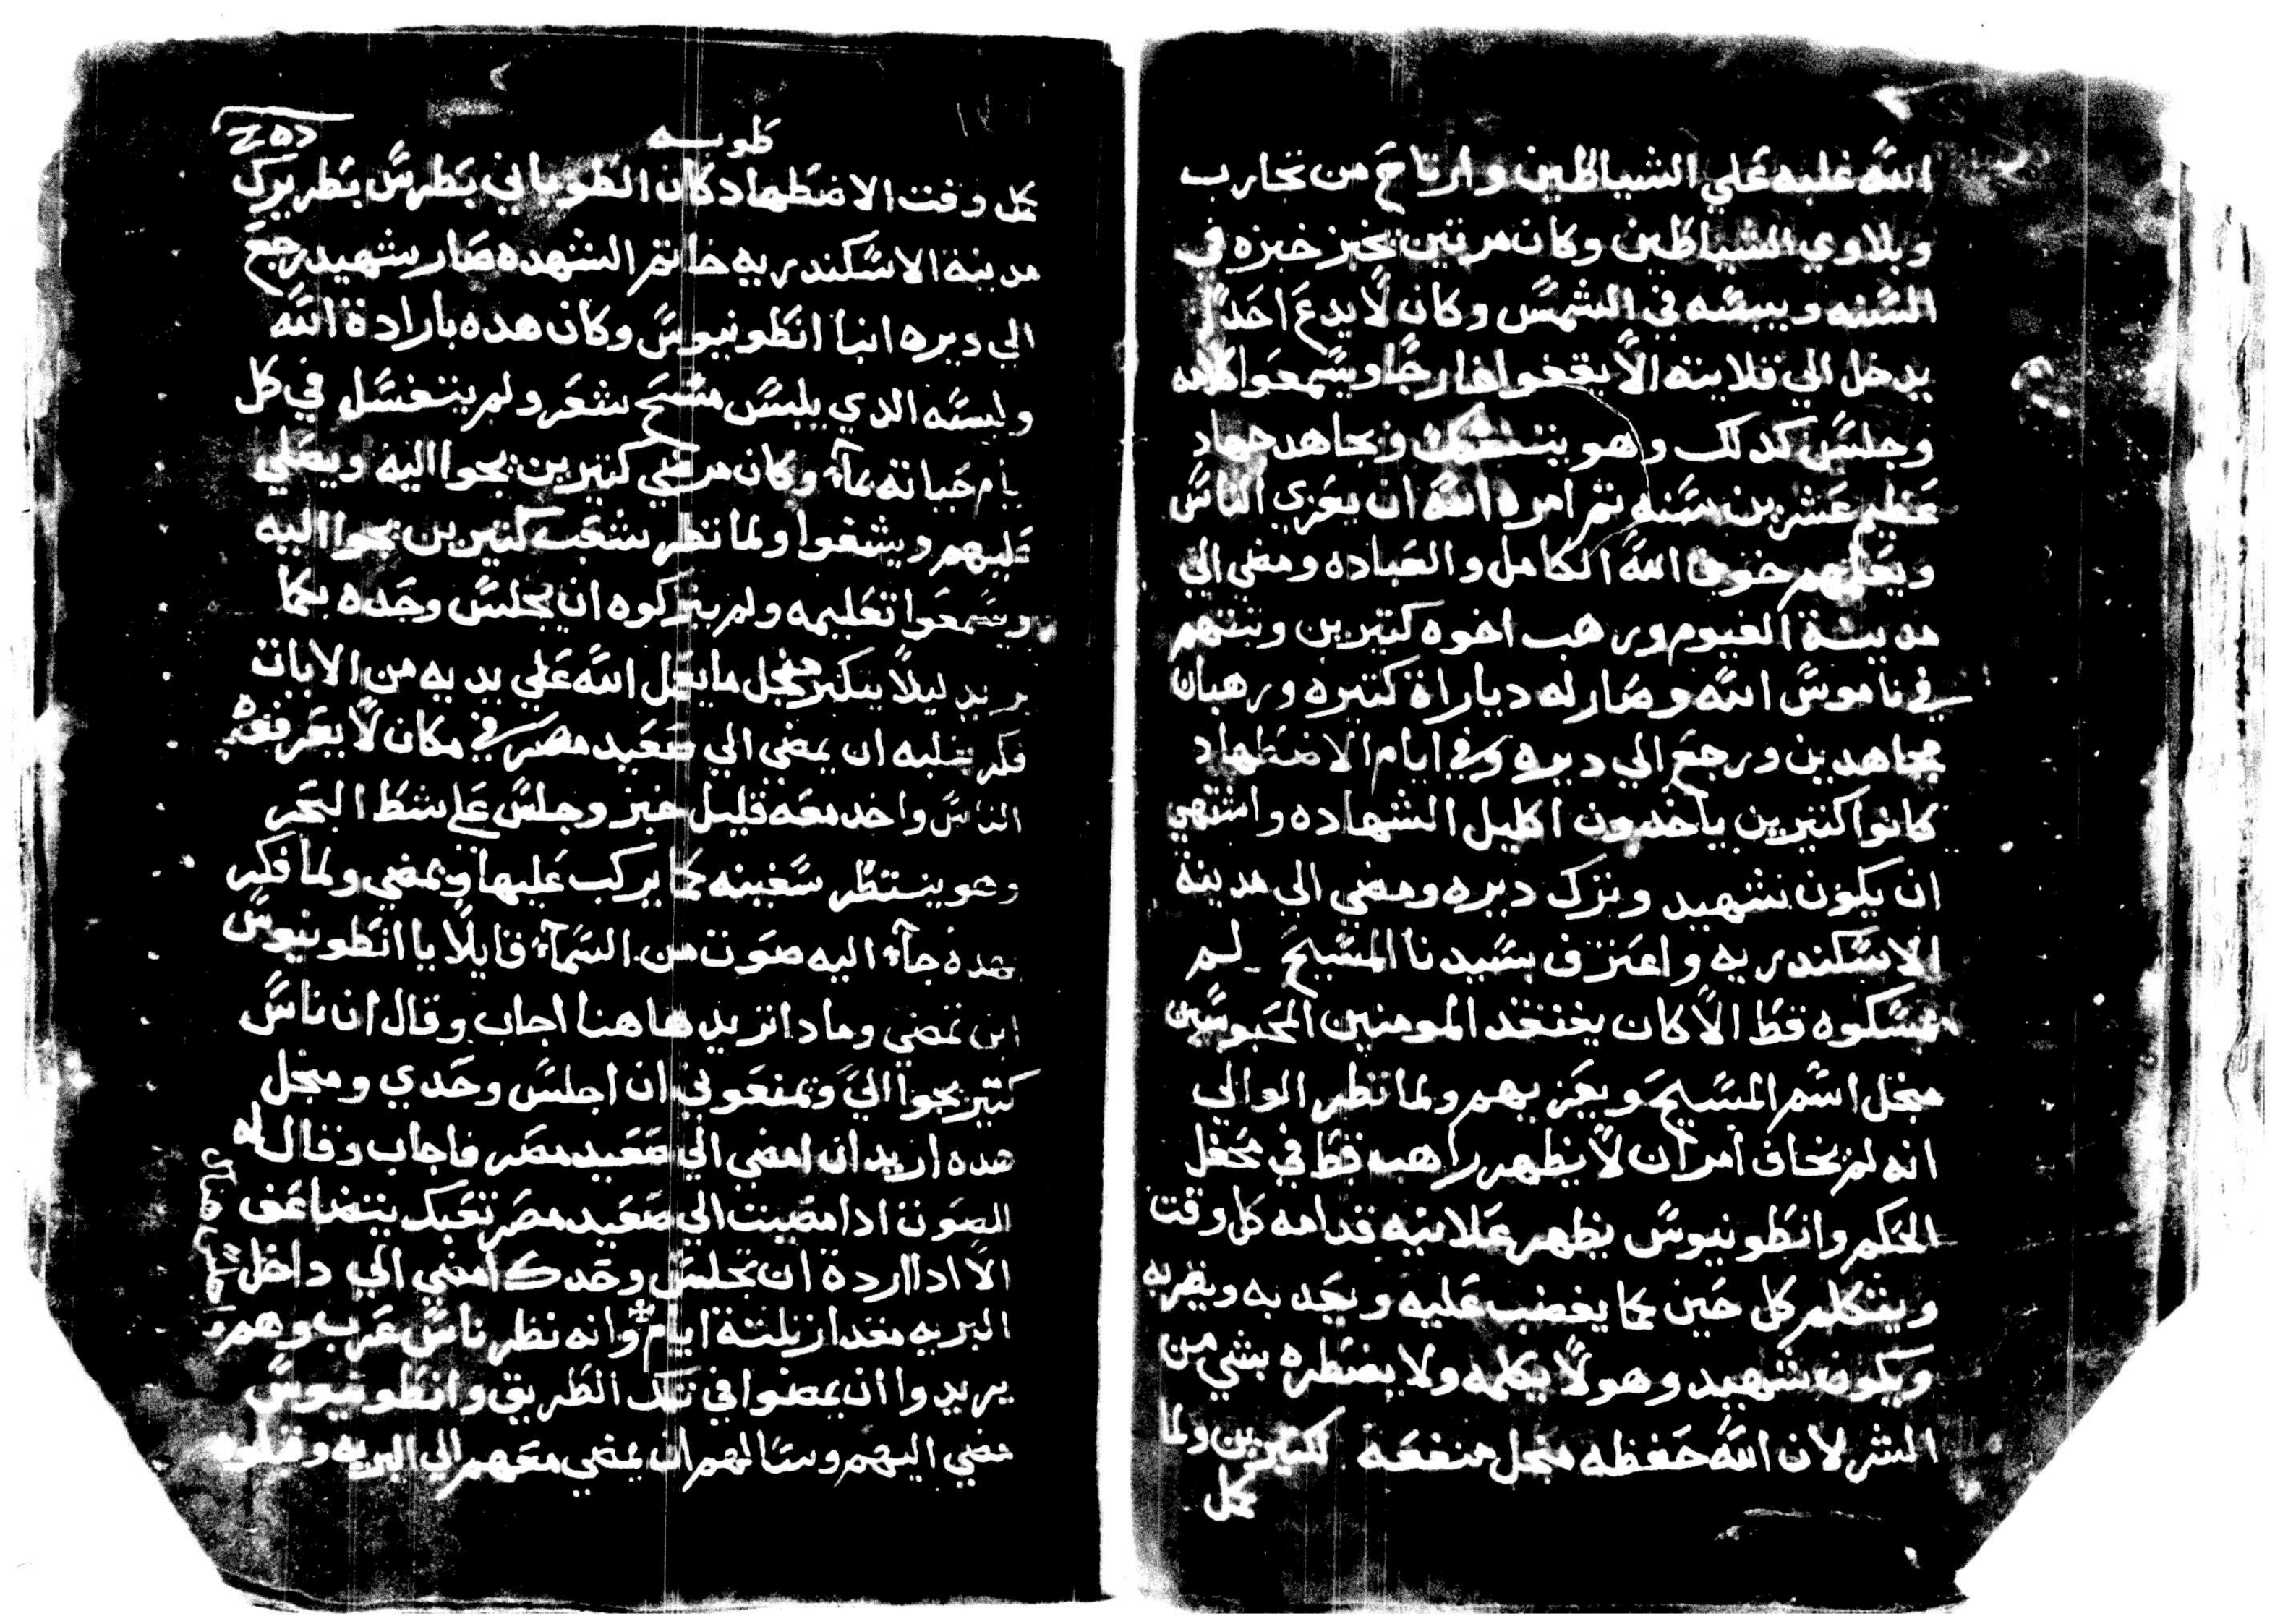 الله غلبه علي الشياطين وارتاح من تجارب
وبلاوي الشياطين وكان مرتين يخبز خبزه في
السنه وييبسه في الشمس وكان لا يدع احدًا
يدخل الي قلايته الا يقفوا خارجًا ويسمعوا كلامه
وجلس كدلك وهو يتنسك ويجاهد جهاد
عظيم عشرين سنه تم امره الله ان يعزي الناس
ويعلمهم خوف الله الكامل والعباده ومضي الي
مدينة الفيوم ورهب اخوه كتيرين وتبتهم
في ناموس الله وصار له دياراة كتيره ورهبان
مجاهدين ورجع الي ديره وفي ايام الاضطهاد
كانوا كتيرين ياخدون اكليل الشهاده واشتهي
ان يكون شهيد وترك ديره ومضي الي مدينة
الاسكندريه واعترف بسيدنا المسيح لم
يمسكوه قط الا كان يفتقد المومنين المحبوسين
مجل اسم المسيح ويعزيهم ولما نظر الوالي
انه لم يخاف امر ان لا يظهر راهب قط في محفل
الحكم وانطونيوس يظهر علانيه قدامه كل وقت
ويتكلم كل حين كما يغضب عليه ويعدبه ويضربه
ويكون شهيد وهو لا يكلمه ولا يضطره بشي من
الشر لان الله حفظه مجل منفعة كتيرين ولما
كمل
طوبه
كمل وقت الاضطهاد كان الطوباني بطرس بطريرك
مدينة الاسكندريه خاتم الشهده صار شهيد رجع
الي ديره انبا انطونيوس وكان هده بارادة الله
ولبسه الدي يلبس مسح شعر ولم يتغسل في كل
ايام حياته بماء وكان مرضي كتيرين يجوا اليه ويصلي
عليهم ويشفوا ولما نظر شعب كتيرين يجوا اليه
ويسمعوا تعليمه ولم يتركوه ان يجلس وحده بكما
يريد ليلًا يتكبر مجل ما يعمل الله علي يديه من الايات
فكر بقلبه ان يمضي الي صعيد مصر في مكان لا يعرفه
الناس واخد معه قليل خبز وجلس علي شط البحر
وهو ينتظر سفينه كما يركب عليها ويمضي ولما فكر
بهده جاء اليه صوت من السماء قايلًا يا انطونيوس
اين تمضي ومادا تريد هاهنا اجاب وقال ان ناس
كتير يجوا الي ويمنعوني ان اجلس وحدي ومجل
هده اريد ان امضي الي صعيد مصر فاجاب وقال له
الصوت ادا مضيت الي صعيد مصر تعبك يتضاعف
الا ادا اردة ان تجلس وحدك امضي الي داخل
البريه مقدار تلتة ايام وانه نظر ناس عرب وهم
يريدوا ان يمضوا في تلك الطريق وانطونيوس
مضي اليهم وسالهم ان يمضي معهم الي البريه وقبلوه